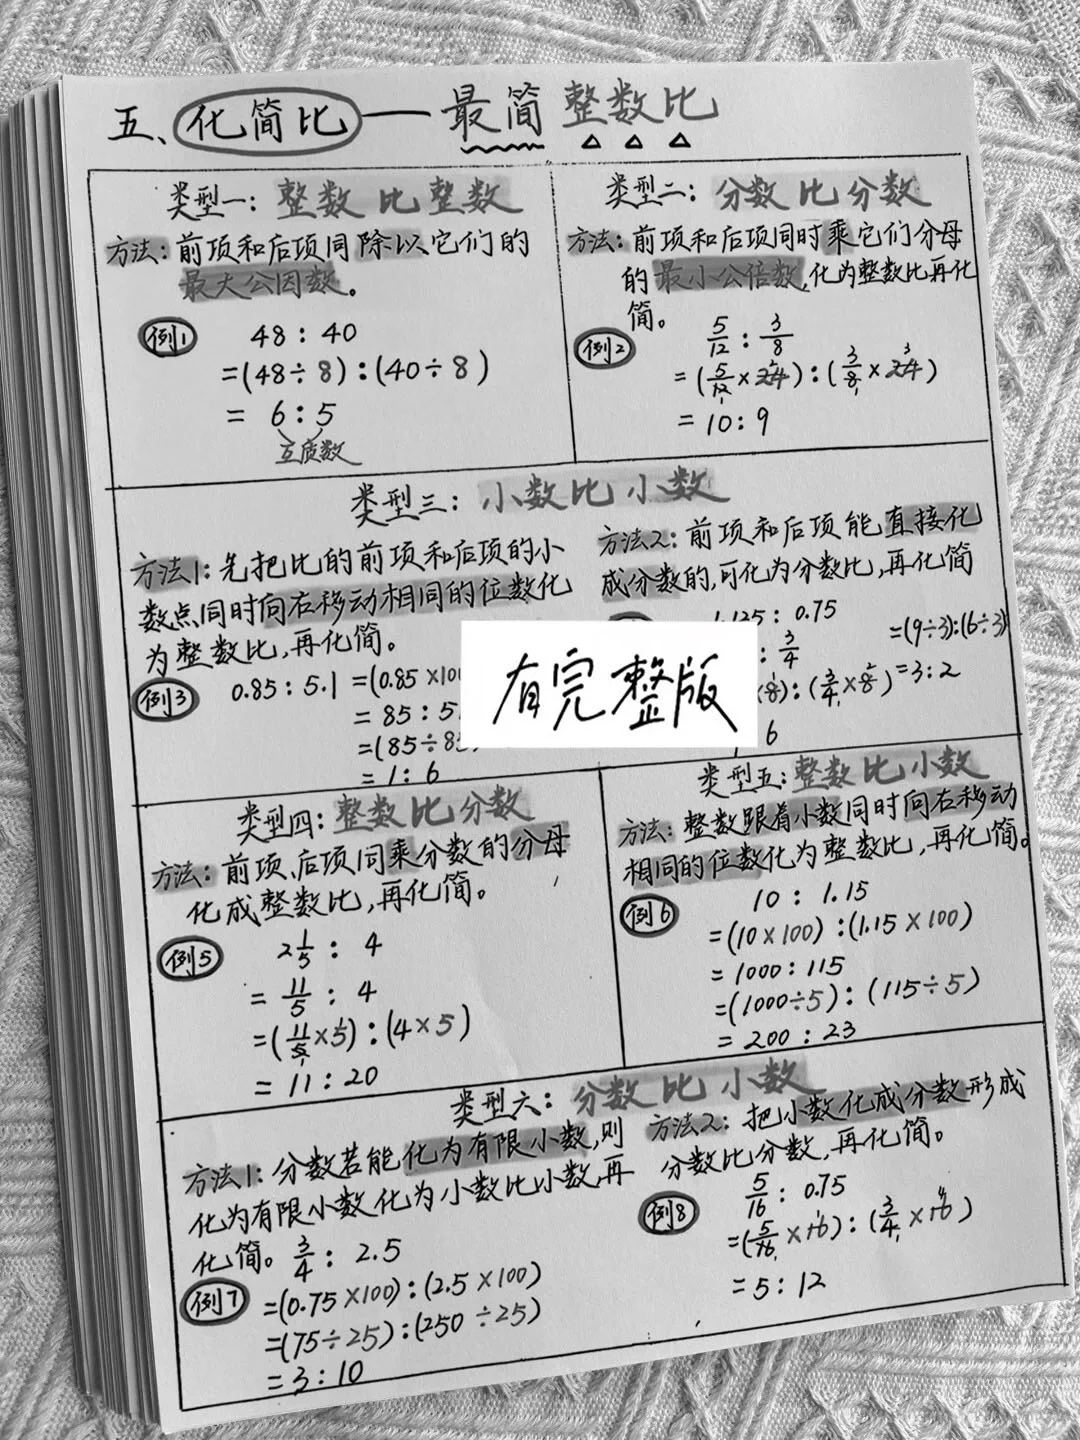 五、化简比——最简整数比
类型一：整数比整数
方法：前项和后项同除以它们的
最大公因数。
例1 48：40
=(48÷8)：(40÷8)
= 6：5
互质数
类型二：分数比分数
方法：前项和后项同时乘它们分母
的最小公倍数，化为整数比再化
简。
例2 5/12：3/8
=(5/12×24)：(3/8×24)
=10：9
类型三：小数比小数
方法1：先把比的前项和后项的小
数点同时向右移动相同的位数化
为整数比，再化简。
例3 0.85：5.1 =(0.85×100
= 85：5
=(85÷85)
= 1：6
方法2：前项和后项能直接化
成分数的，可化为分数比，再化简
1.125：0.75
：3/4
：(3/4×8)
6
=(9÷3)：(6÷3)
=3：2
有完整版
类型四：整数比分数
方法：前项、后项同乘分数的分母
化成整数比，再化简。
例5 2 1/5：4
= 11/5：4
=(11/5×5)：(4×5)
= 11：20
类型五：整数比小数
方法：整数跟着小数同时向右移动
相同的位数化为整数比，再化简。
例6 10：1.15
=(10×100)：(1.15×100)
=1000：115
=(1000÷5)：(115÷5)
= 200：23
类型六：分数比小数
方法1：分数若能化为有限小数，则
化为有限小数化为小数比小数，再
化简。 3/4：2.5
例7 =(0.75×100)：(2.5×100)
=(75÷25)：(250÷25)
=3：10
方法2：把小数化成分数形成
分数比分数，再化简。
例8 5/16：0.75
=(5/16×16)：(3/4×16)
=5：12